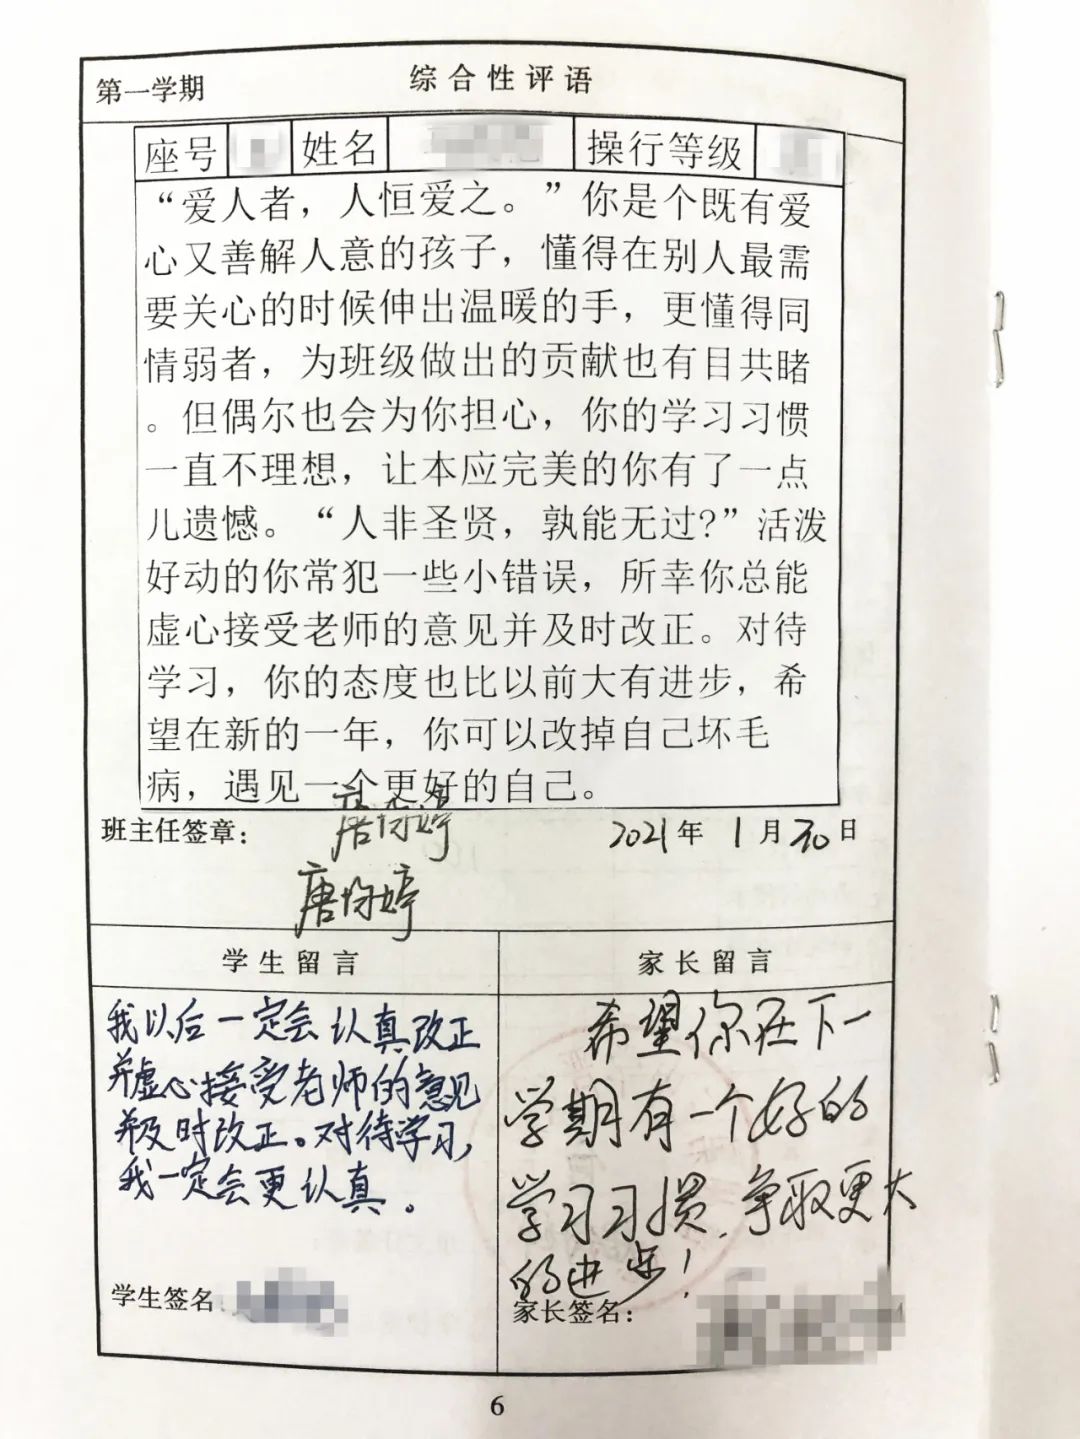 第一学期 综合性评语
座号 姓名 操行等级
“爱人者，人恒爱之。”你是个既有爱
心又善解人意的孩子，懂得在别人最需
要关心的时候伸出温暖的手，更懂得同
情弱者，为班级做出的贡献也有目共睹
。但偶尔也会为你担心，你的学习习惯
一直不理想，让本应完美的你有了一点
儿遗憾。“人非圣贤，孰能无过?”活泼
好动的你常犯一些小错误，所幸你总能
虚心接受老师的意见并及时改正。对待
学习，你的态度也比以前大有进步，希
望在新的一年，你可以改掉自己坏毛
病，遇见一个更好的自己。
班主任签章： 2021年 1月30日
学生留言
我以后一定会认真改正
并虚心接受老师的意见
并及时改正。对待学习，
我一定会更认真。
学生签名
家长留言
希望你在下一
学期有一个好的
学习习惯，争取更大
的进步！
家长签名：
6